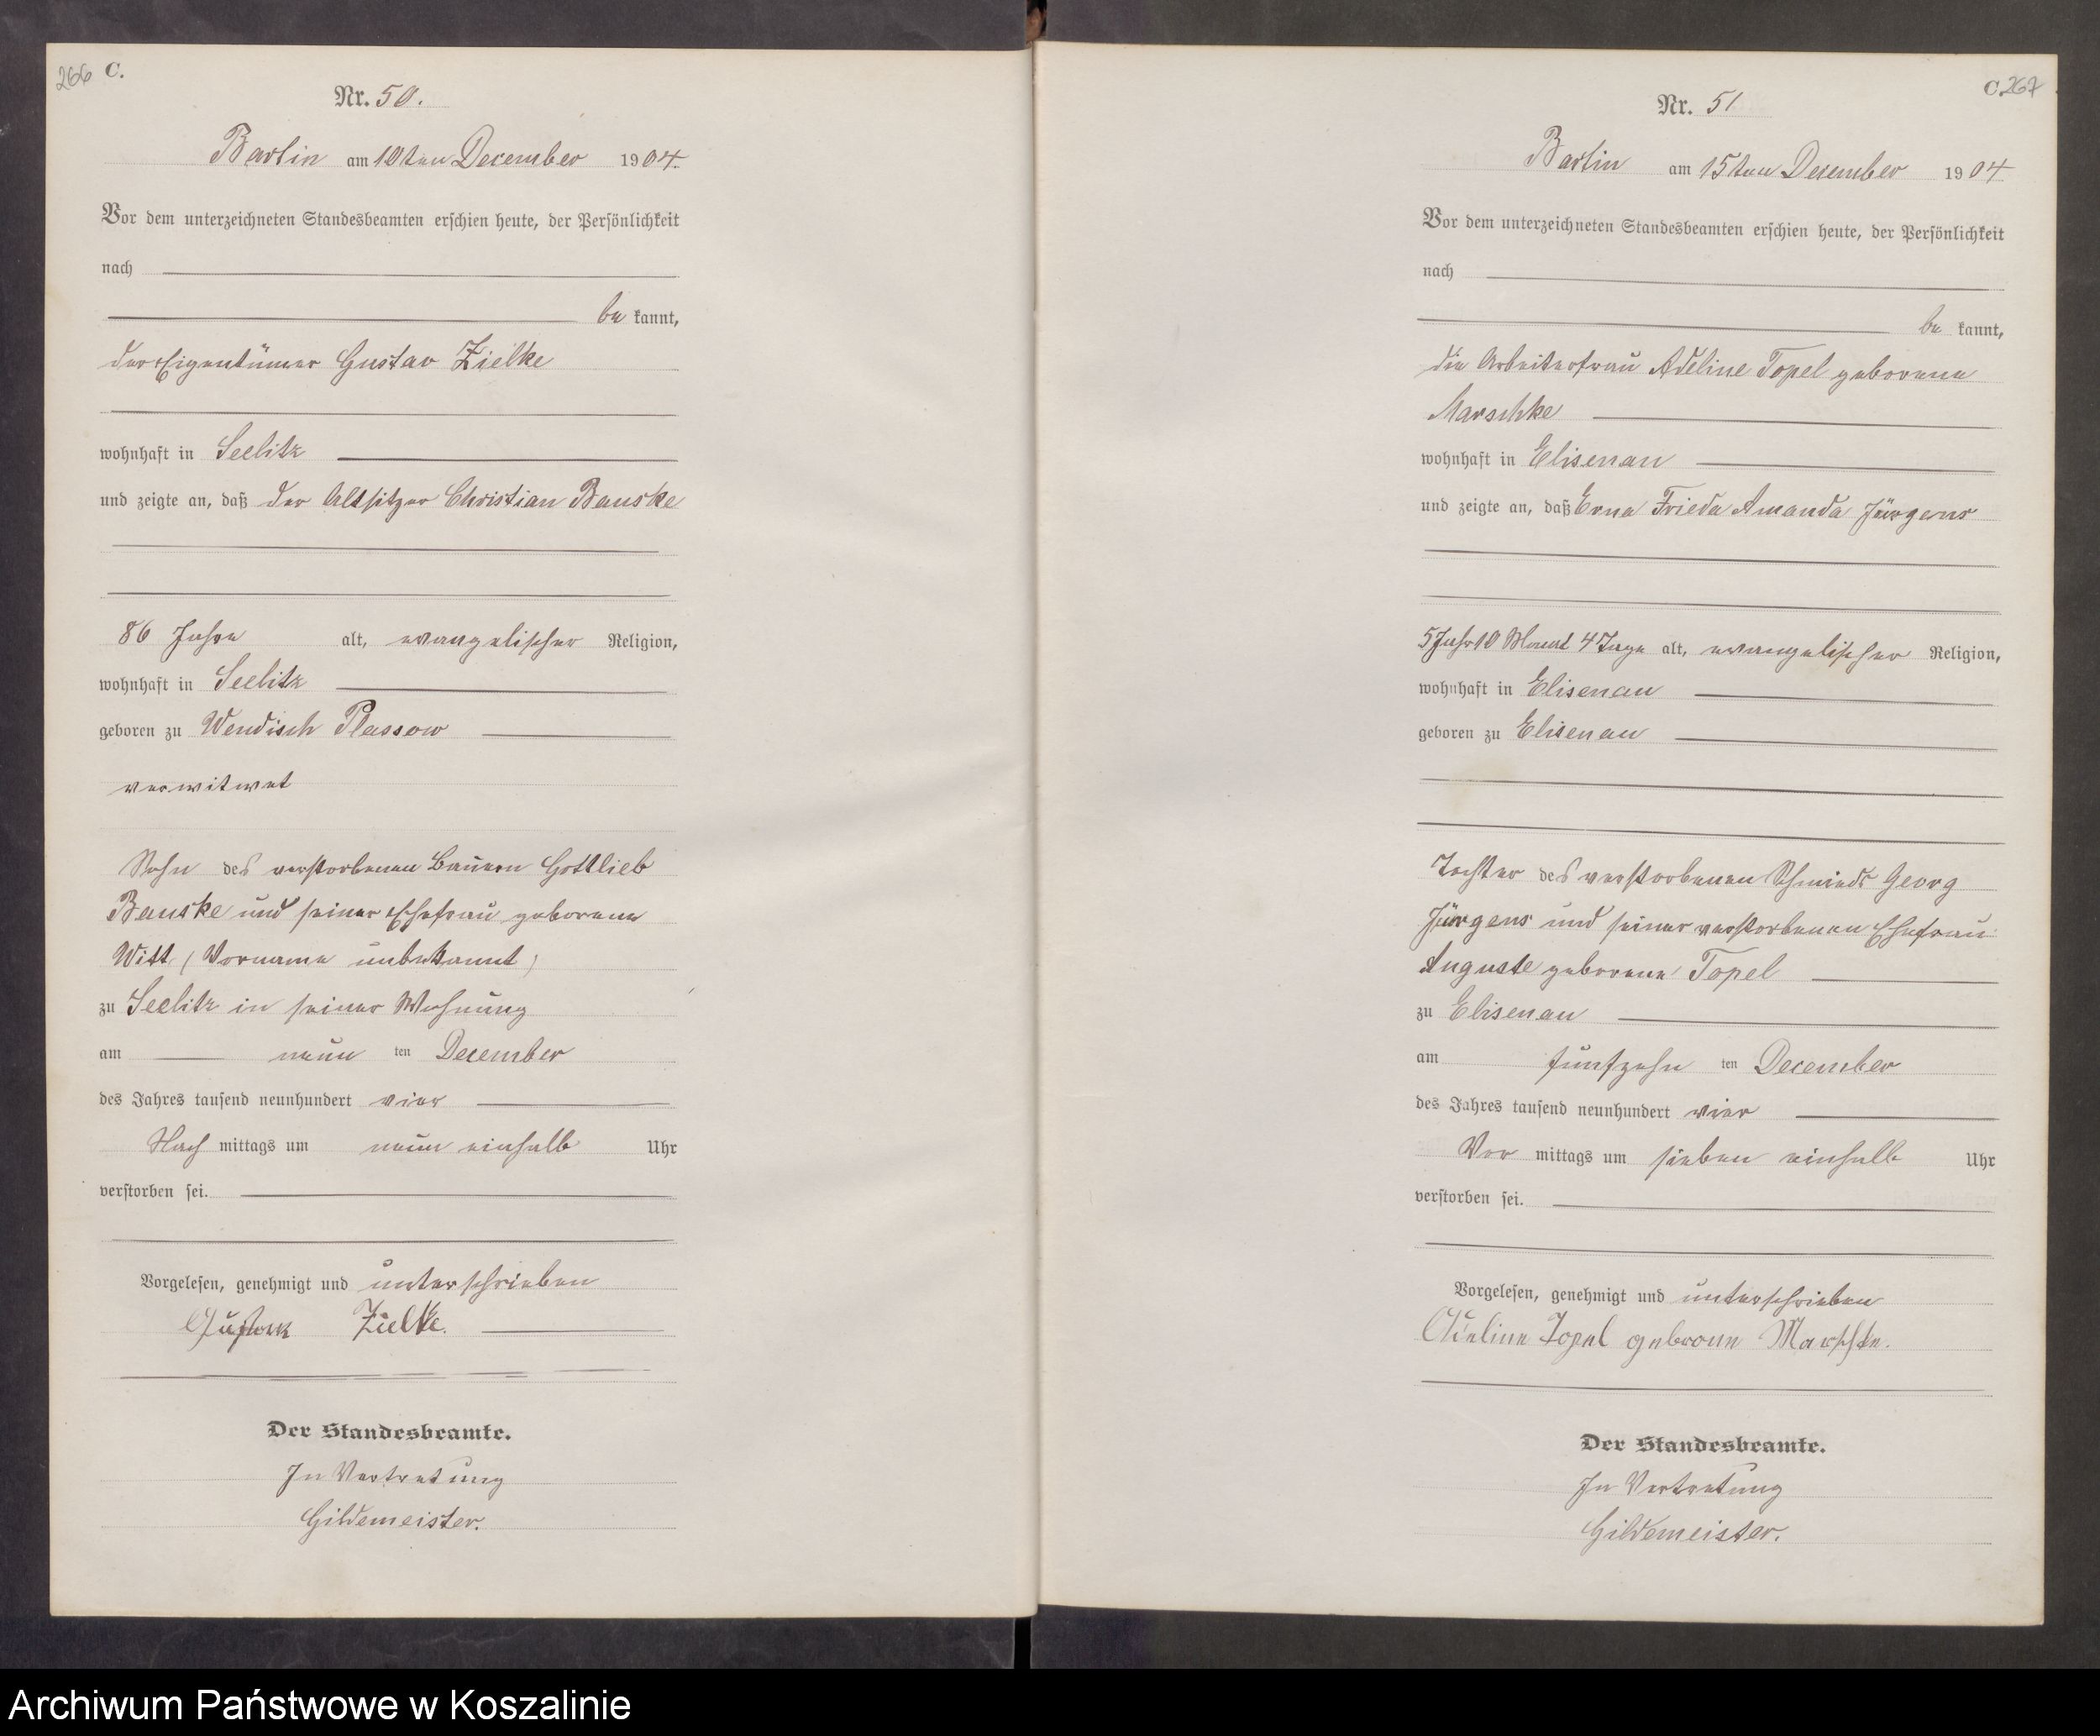 266 C.
Nr. 50.
Bartin am 10ten December 1904.
Vor dem unterzeichneten Standesbeamten erschien heute, der Persönlichkeit
nach
be kannt,
der Eigentümer Gustav Zielke
wohnhaft in Seelitz
und zeigte an, daß der Altsitzer Christian Bauske
86 Jahre alt, evangelischer Religion,
wohnhaft in Seelitz
geboren zu Wendisch Plassow
verwitwet
Sohn des verstorbenen Bauern Gottlieb
Bauske und seiner Ehefrau geborene
Witt (Vorname unbekannt)
zu Seelitz in seiner Wohnung
am neun ten December
des Jahres tausend neunhundert vier
Nach mittags um neun einhalb Uhr
verstorben sei.
Vorgelesen, genehmigt und unterschrieben
Gustav Zielke.
Der Standesbeamte.
In Vertretung
Gildemeister.
C. 267
Nr. 51
Bartin am 15ten December 1904
Vor dem unterzeichneten Standesbeamten erschien heute, der Persönlichkeit
nach
be kannt,
die Arbeiterfrau Adeline Topel geborene
Marschke
wohnhaft in Elisenau
und zeigte an, daß Erna Frieda Amanda Jürgens
5 Jahr 10 Monat 4 Tage alt, evangelischer Religion,
wohnhaft in Elisenau
geboren zu Elisenau
Tochter des verstorbenen Schmieds Georg
Jürgens und seiner verstorbenen Ehefrau
Auguste geborene Topel
zu Elisenau
am fünfzehn ten December
des Jahres tausend neunhundert vier
Vor mittags um sieben einhalb Uhr
verstorben sei.
Vorgelesen, genehmigt und unterschrieben
Adeline Topel geborene Marschke.
Der Standesbeamte.
In Vertretung
Gildemeister.
Archiwum Państwowe w Koszalinie